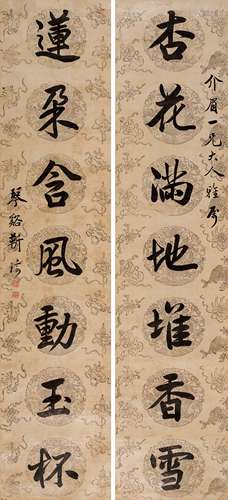 介眉一兄大人雅屬
杏花滿地堆香雪
蓮朵含風動玉杯
琴谿